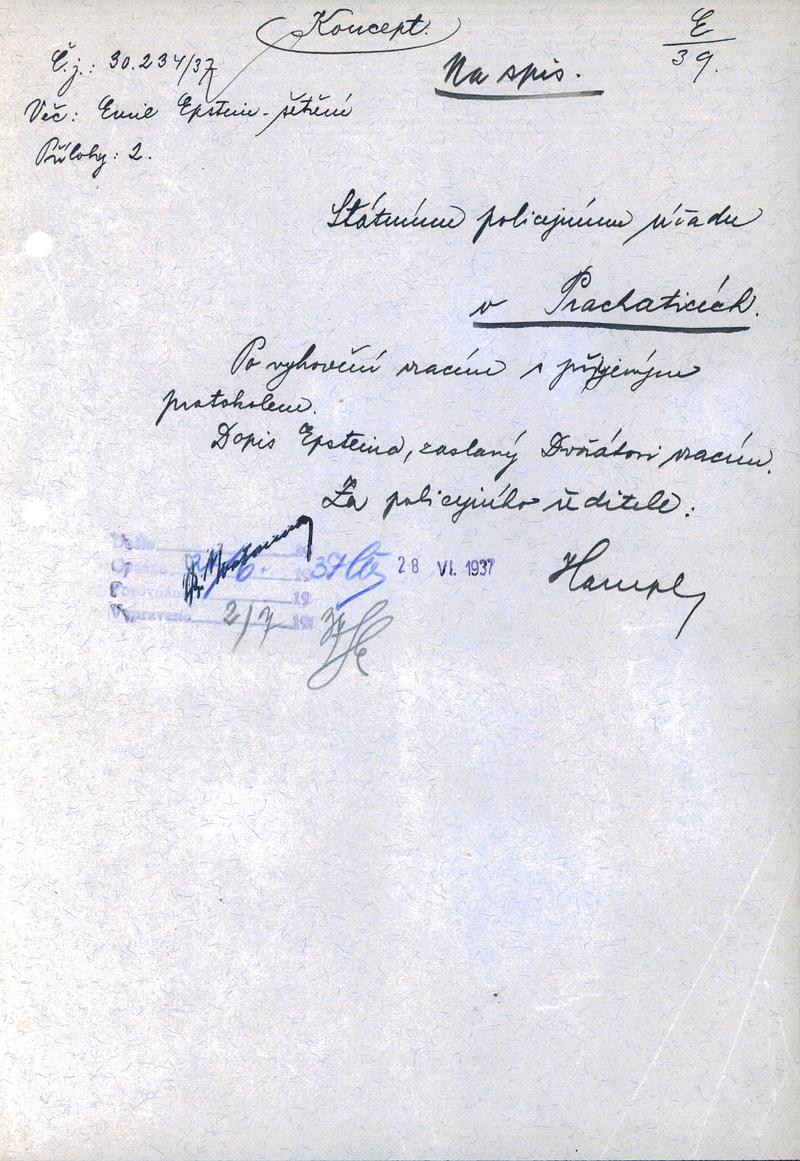 Koncept.
E
39.
Č.j.: 30.234/37
Na spis.
Věc: Emil Epstein - šetření
Přílohy: 2.
Státnímu policejnímu úřadu
v Prachaticích.
Po vyhovění vracím s připojeným
protokolem.
Dopis Epsteina, zaslaný Dvořákovi vracím.
Za policejního ředitele:
Došlo 19
Opsáno 6. 1937
28 VI. 1937
Hampl
Porovnáno 19
Vypraveno 2/7 1937